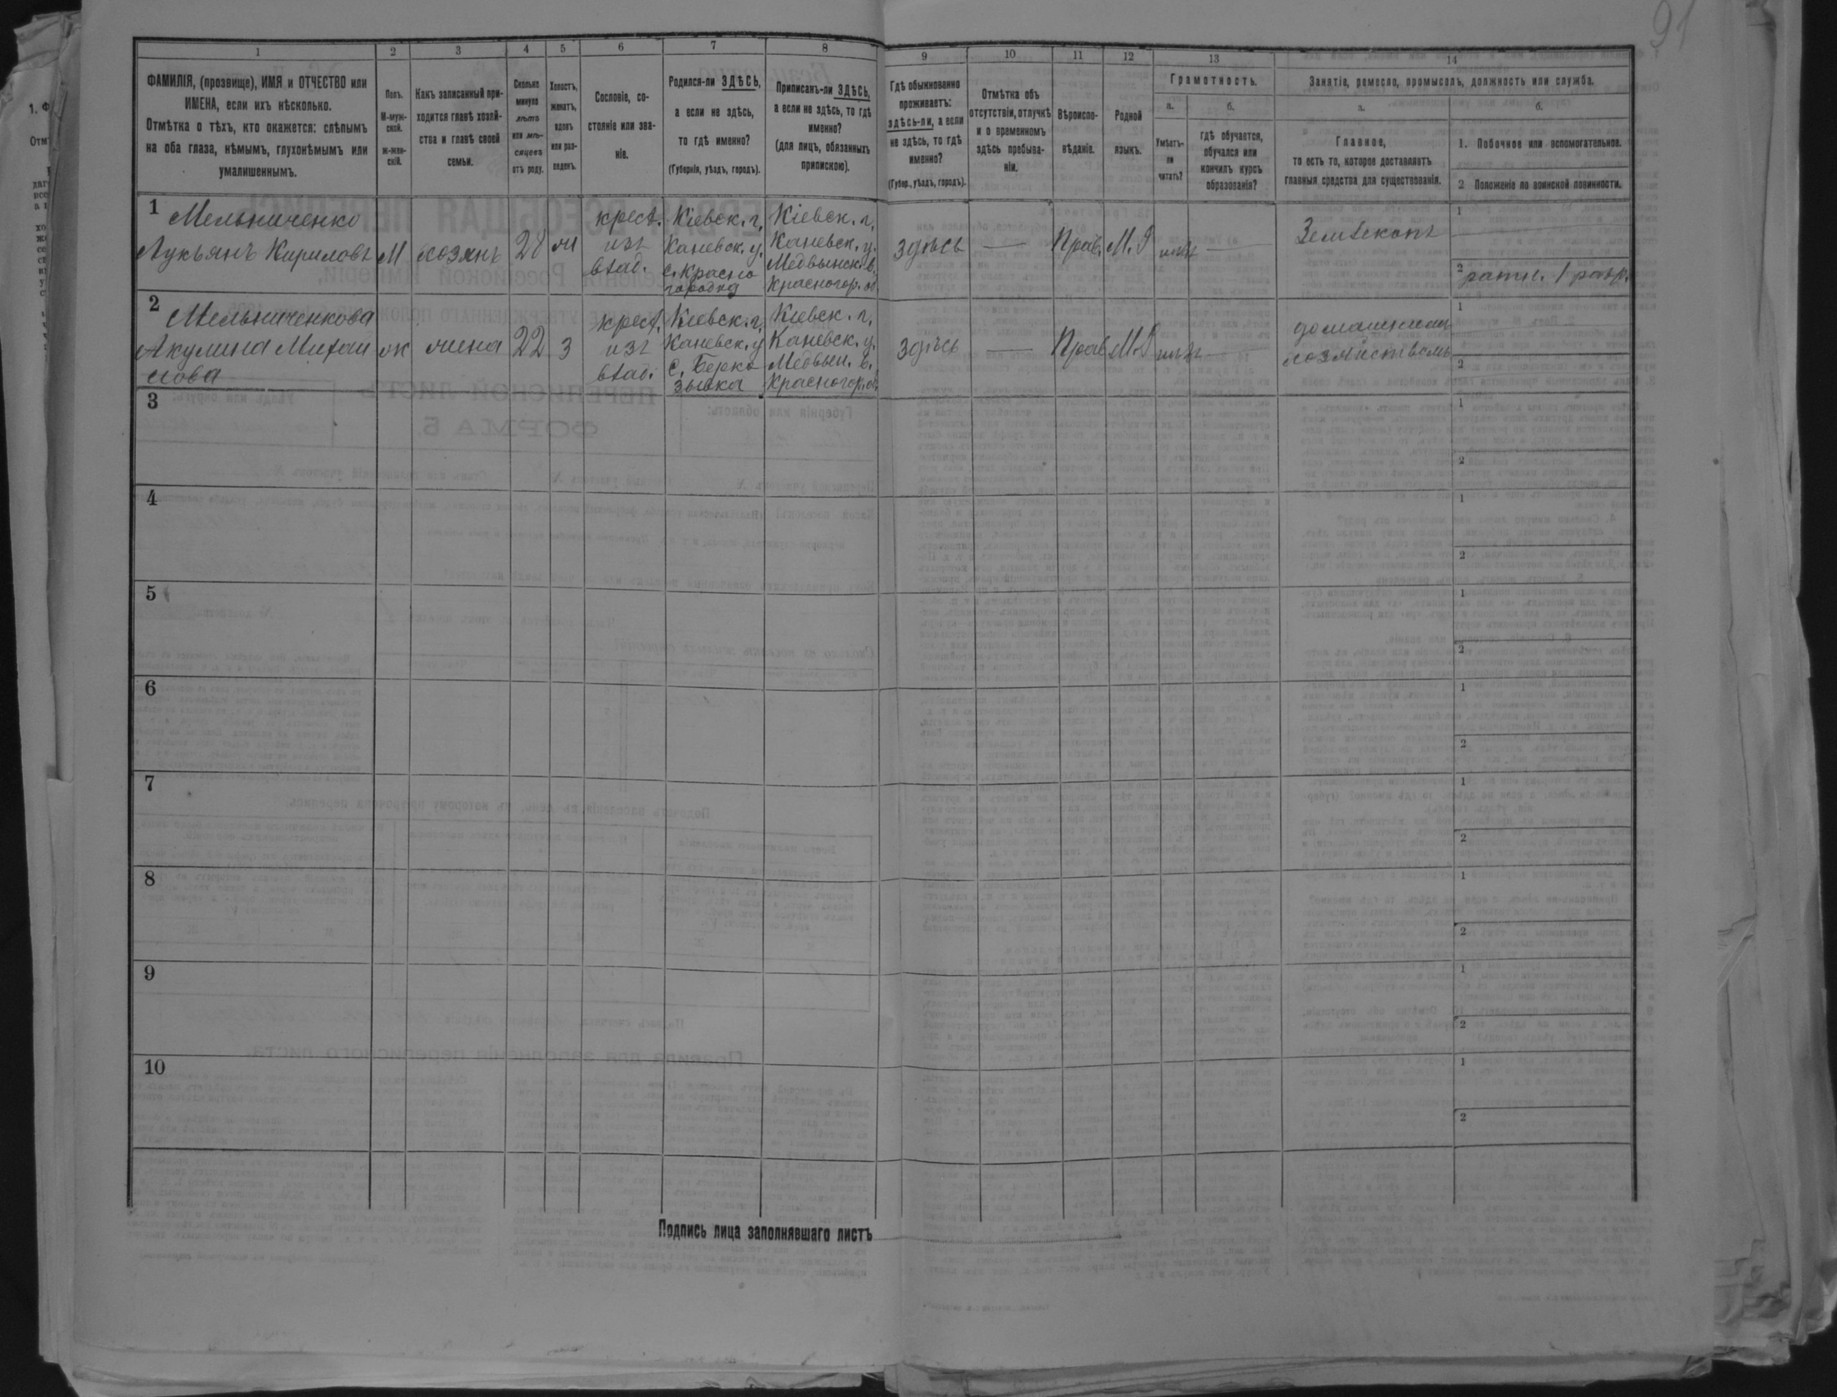 91
1 2 3 4 5 6 7 8 9 10 11 12 13 14
ФАМИЛІЯ, (прозвище), ИМЯ и ОТЧЕСТВО или
ИМЕНА, если ихъ нѣсколько.
Отмѣтка о тѣхъ, кто окажется: слѣпымъ
на оба глаза, нѣмымъ, глухонѣмымъ или
умалишеннымъ.
Полъ.
М-муж-
ской.
ж-жен-
скій.
Какъ записанный при-
ходится главѣ хозяй-
ства и главѣ своей
семьи.
Сколько
минуло
лѣтъ
или мѣ-
сяцевъ
отъ роду.
Холостъ,
женатъ,
вдовъ
или раз-
веденъ.
Сословіе, со-
стояніе или зва-
ніе.
Родился-ли ЗДѢСЬ,
а если не здѣсь,
то гдѣ именно?
(Губернія, уѣздъ, городъ).
Приписанъ-ли ЗДѢСЬ,
а если не здѣсь, то гдѣ
именно?
(для лицъ, обязанныхъ
припискою).
Гдѣ обыкновенно
проживаетъ:
здѣсь-ли, а если
не здѣсь, то гдѣ
именно?
(Губер., уѣздъ, городъ).
Отмѣтка объ
отсутствіи, отлучкѣ
и о временномъ
здѣсь пребыва-
ніи.
Вѣроиспо-
вѣданіе.
Родной
языкъ.
Грамотность.
а. б.
Умѣетъ-
ли
читать?
гдѣ обучается,
обучался или
кончилъ курсъ
образованія?
Занятія, ремесло, промыселъ, должность или служба.
а. б.
Главное,
то есть то, которое доставляетъ
главныя средства для существованія.
1. Побочное или вспомогательное.
2 Положеніе по воинской повинности.
1
Мельниченко
Лукьянъ Кириловъ
М
хозяинъ
28
ж
крест.
изъ
влад.
Кіевск. г,
Каневск. у.
с. Красно
городка
Кіевск. г,
Каневск. у.
Медвынск. в.
Красногор. о.
здѣсь
—
Прав.
М. Р
—
Земледѣлецъ
1
2 ратн. 1 разр.
2
Мельниченкова
Акулина Михай
лова
ж
жена
22
З
крест.
изъ
влад.
Кіевск. г,
Каневск. у
с. Берко
зывка
Кіевск. г,
Каневск. у.
Медвын. в.
Красногор. о.
здѣсь
—
Прав.
М. Р
—
домашнимъ
хозяйствомъ
1
2
3
1
2
4
1
2
5
1
2
6
1
2
7
1
2
8
1
2
9
1
2
10
1
2
Подпись лица заполнявшаго листъ